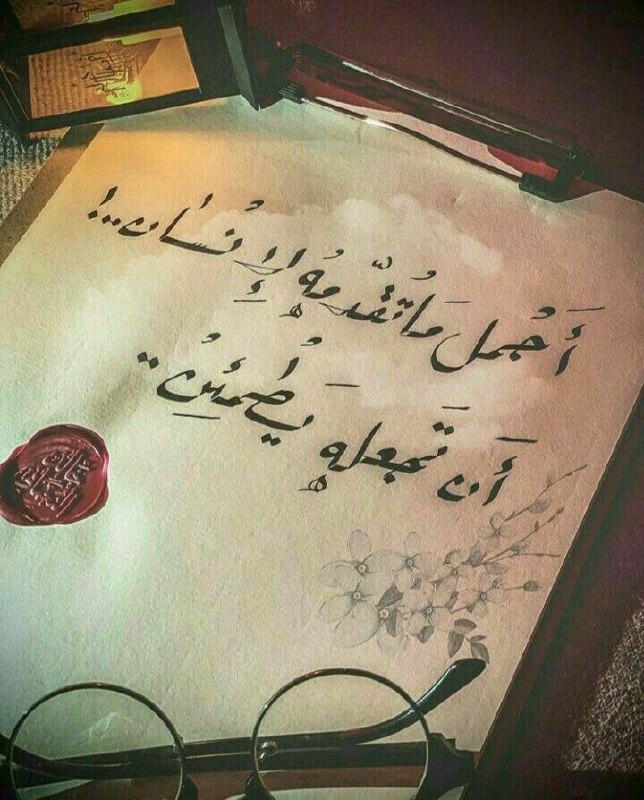 أَجْملَ مَا تُقَدّمهُ لإِنْسَان...!
أَن تَجعلهِ يَطْمئِنُ..